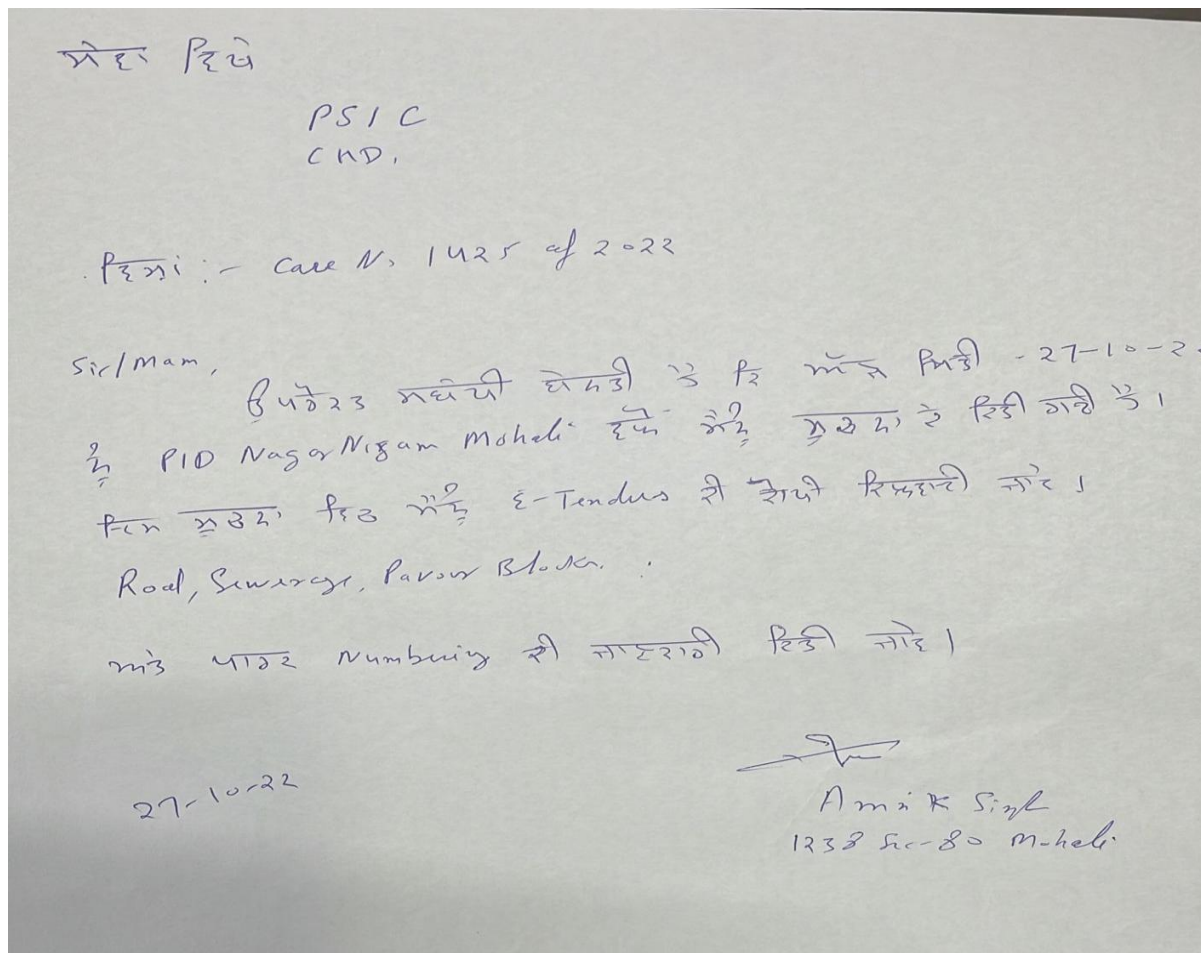 ਸੇਵਾ ਵਿਖੇ
PSIC
CHD.
ਵਿਸ਼ਾ :- Case No 1425 of 2022
Sir/Mam,
ਉਪਰੋਕਤ ਸਬੰਧੀ ਬੇਨਤੀ ਹੈ ਕਿ ਅੱਜ ਮਿਤੀ - 27-10-2
ਨੂੰ PIO Nagar Nigam Mohali ਵਲੋਂ ਮੈਨੂੰ ਸੂਚਨਾ ਦੇ ਦਿਤੀ ਗਈ ਹੈ।
ਇਸ ਸੂਚਨਾ ਵਿਚ ਮੈਨੂੰ E-Tenders ਦੀ ਕਾਪੀ ਦਿਲਵਾਈ ਜਾਵੇ।
Road, Sewerage, Pavour Blocks.
ਅਤੇ ਪਾਰਕ Numbering ਦੀ ਜਾਣਕਾਰੀ ਦਿਤੀ ਜਾਵੇ।
27-10-22
Amrik Singh
1238 Sec-80 Mohali